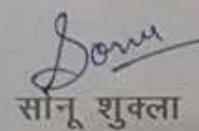 Sonu
सोनू शुक्ला